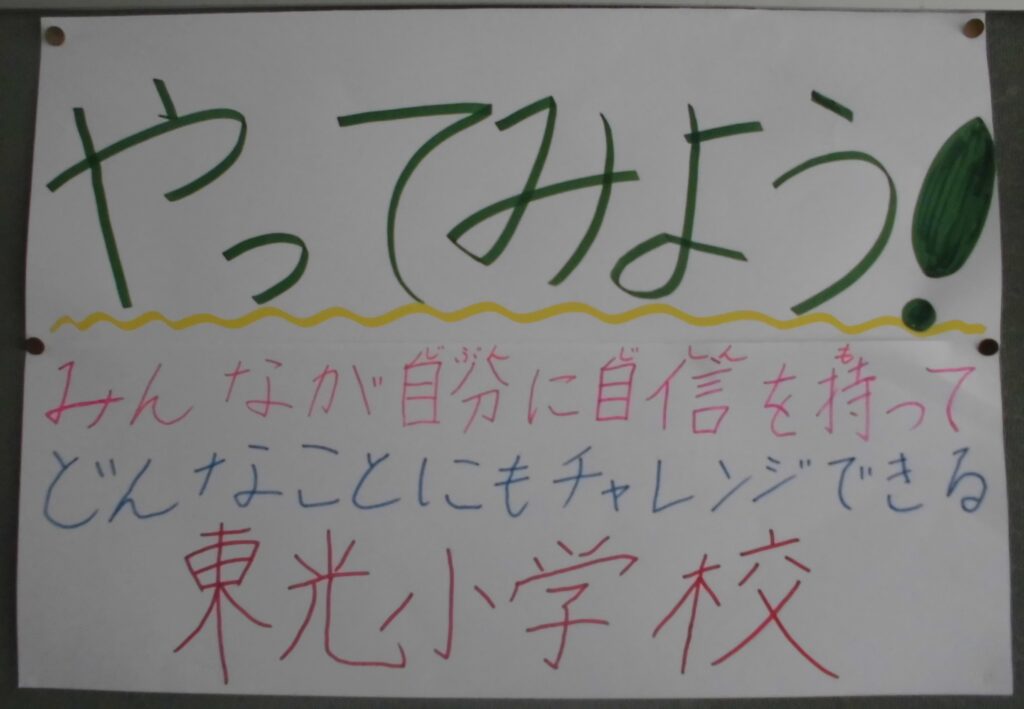 やってみよう!
みんなが自分に自信を持って
どんなことにもチャレンジできる
東光小学校